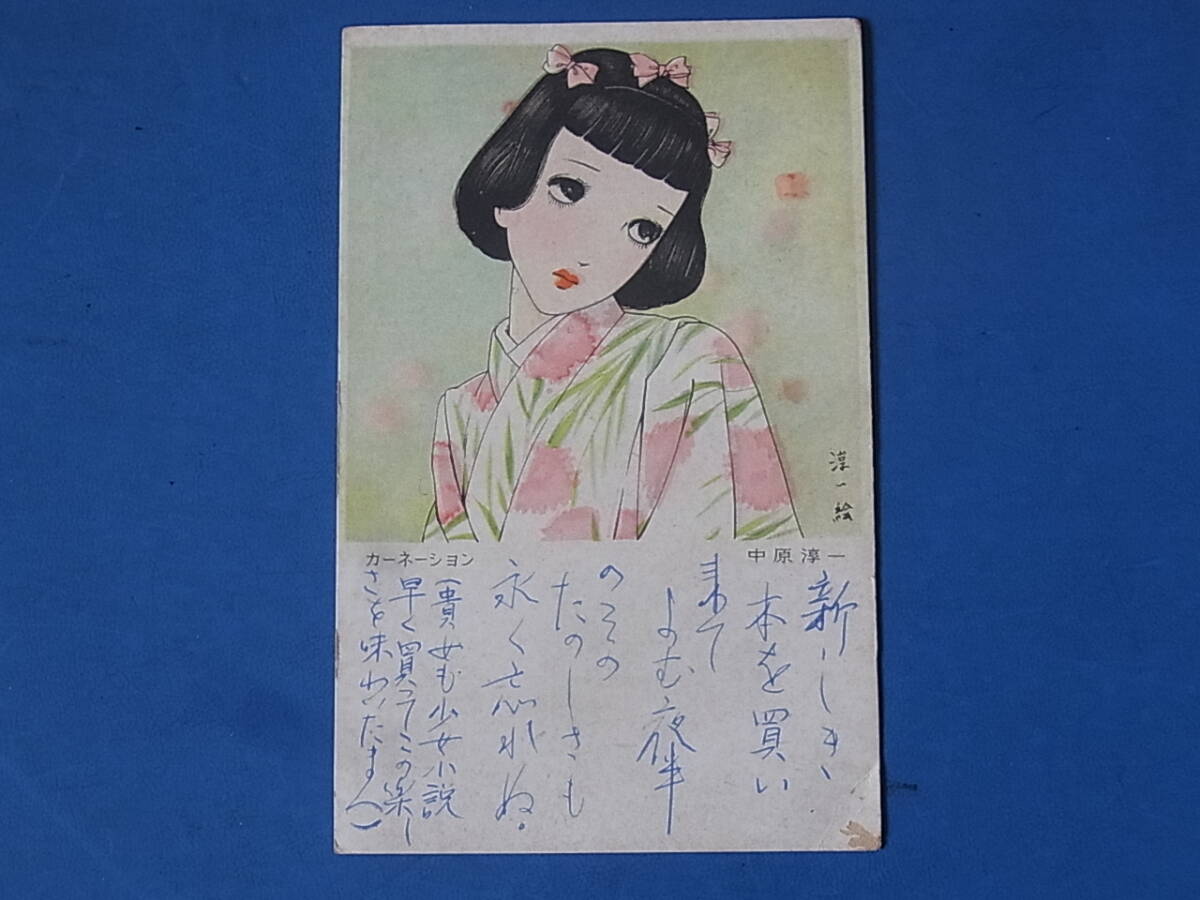 淳一絵
カーネーション
中原淳一
新しき
本を買い
来て
よむ夜半
のその
たのしさも
永く忘れぬ。
(貴女も少女小説
早く買ってこの楽し
さを味わいたまへ)